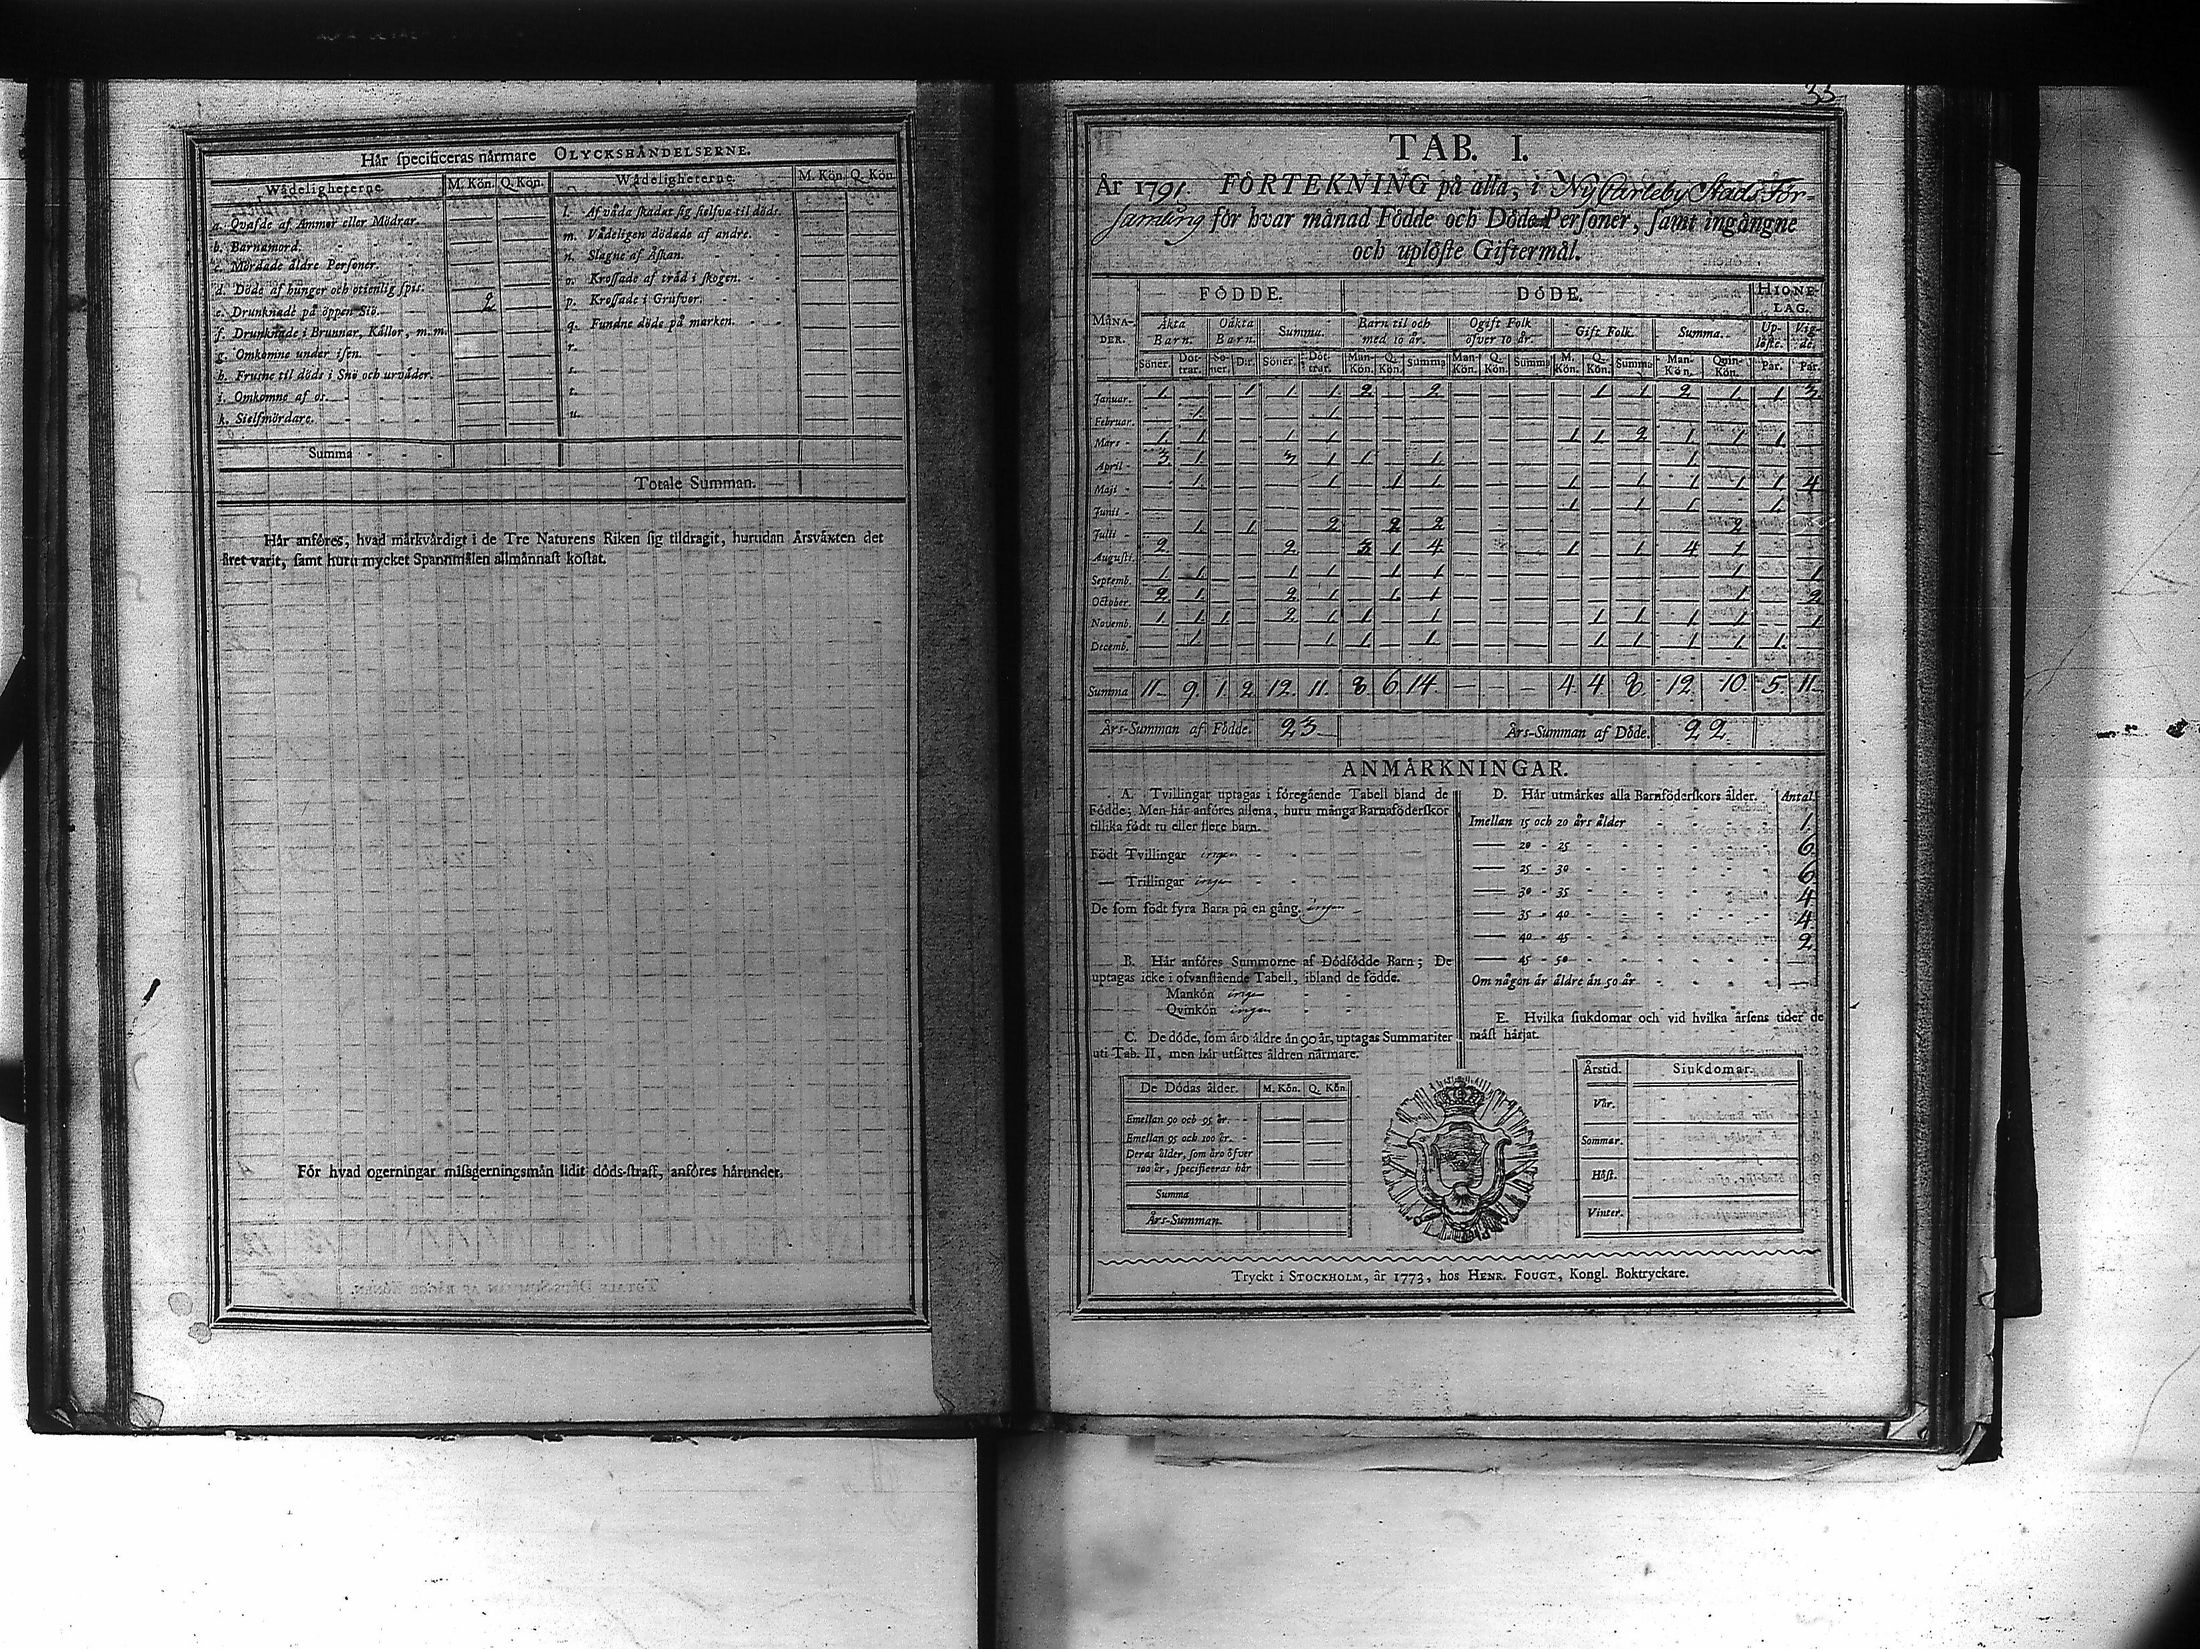 Hår ſpecificeras nårmare OLYCKSHÅNDELSERNE.
Wådeligheterne. M. Kön. Q. Kon. Wådeligheterne. M. Kön. Q. Kön
a. Qvafde af Ammor eller Mödrar. — —
b. Barnamord. — —
c. Mördade åldre Perſoner. — —
d. Döde af hunger och otienlig ſpis. — —
e. Drunknade på öppen Siö. 2 —
f. Drunknade i Brunnar, Kållor, m. m. — —
g. Omkomne under iſen. — —
h. Fruſne til döds i Snö och urvåder. — —
i. Omkomne af os. — —
k. Sielfmördare. — —
l. Af våda ſkadat ſig ſielfva til döds. — —
m. Vådeligen dödade af andre. — —
n. Slagne af Åſkan. — —
o. Kroſſade af tråd i ſkogen. — —
p. Kroſſade i Grufvor. — —
q. Fundne döde på marken. — —
r. — —
s. — —
t. — —
u. — —
Summa
Totale Summan.
Hår anföres, hvad mårkvårdigt i de Tre Naturens Riken ſig tildragit, hurudan Årsvåxten det
året varit, ſamt huru mycket Spannmålen allmånnaſt koſtat.
För hvad ogerningar miſsgerningsmån lidit döds-ſtraff, anföres hårunder.
33
TAB. I.
År 1791. FÖRTEKNING på alla, i Ny Carleby Stads För-
samling för hvar månad Födde och Döde Perſoner, ſamt ingångne
och uplöſte Giftermål.
MÅNA-DER. FÖDDE. DÖDE. HIONE-LAG.
Åkta Barn. Oåkta Barn. Summa. Barn til och med 10 år. Ogift Folk öfver 10 år. Gift Folk. Summa. Up-löſte. Vig-de.
Söner. Döt-trar. Sö-ner. Dtr. Söner. Döt-trar. Man-Kön. Q. Kön. Summa Man-Kön. Q. Kön. Summa M. Kön. Q. Kön. Summa Man-Kön. Qvin-Kön. Par. Par.
Januar. 1 — — 1 1 1 2 — 2 — — — — 1 1 2 1 1 3
Februar. — 1 — — — 1 — — — — — — — — — — — — —
Mars 1 1 — — 1 1 — — — — — — 1 1 2 1 1 1 —
April 3 1 — — 3 1 1 — 1 — — — — — — 1 — — —
Maji — 1 — — — 1 — 1 1 — — — 1 — 1 1 1 1 4
Junii — — — — — — — — — — — — 1 — 1 1 — 1 —
Julii — 1 — 1 — 2 — 2 2 — — — — — — — 2 — —
Auguſti. 2 — — — 2 — 3 1 4 — — — 1 — 1 4 1 — —
Septemb. 1 1 — — 1 1 — 1 1 — — — — — — — 1 — 1
October. 2 1 — — 2 1 — 1 1 — — — — — — — 1 — 2
Novemb. 1 1 1 — 2 1 1 — 1 — — — — 1 1 1 1 — 1
Decemb. — 1 — — — 1 1 — 1 — — — — 1 1 1 1 1 —
Summa 11 9. 1 2 12. 11. 8. 6 14. — — — 4 4 8 12. 10. 5. 11
Års-Summan af Födde. 23 Års-Summan af Döde. 22
ANMÅRKNINGAR.
A. Tvillingar uptagas i föregående Tabell bland de
Födde; Men hår anföres allena, huru många Barnaföderſkor
tillika födt tu eller flere barn.
Födt Tvillingar ingen
— Trillingar ingen
De ſom födt fyra Barn på en gång. ingen
B. Hår anföres Summorne af Dödfödde Barn; De
uptagas icke i ofvanſtående Tabell, ibland de födde.
Mankön ingen
Qvinkön ingen
C. De döde, ſom åro åldre ån 90 år, uptagas Summariter
uti Tab. II, men hår utſåttes åldren nårmare.
De Dödas ålder. M. Kön. Q. Kön.
Emellan 90 och 95 år. — —
Emellan 95 och 100 år. — —
Deras ålder, ſom åro öfver
100 år, ſpecificeras hår — —
Summa
Års-Summan.
D. Hår utmårkes alla Barnföderſkors ålder. Antal.
Imellan 15 och 20 års ålder 1.
— 20 - 25 6.
— 25 - 30 6
— 30 - 35 4
— 35 - 40 4.
— 40 - 45 2
— 45 - 50 —
Om någon år åldre ån 50 år —
E. Hvilka ſiukdomar och vid hvilka årſens tider de
måſt hårjat.
Årstid. Siukdomar.
Vår.
Sommar.
Höſt.
Vinter.
Tryckt i STOCKHOLM, år 1773, hos HENR. FOUGT, Kongl. Boktryckare.